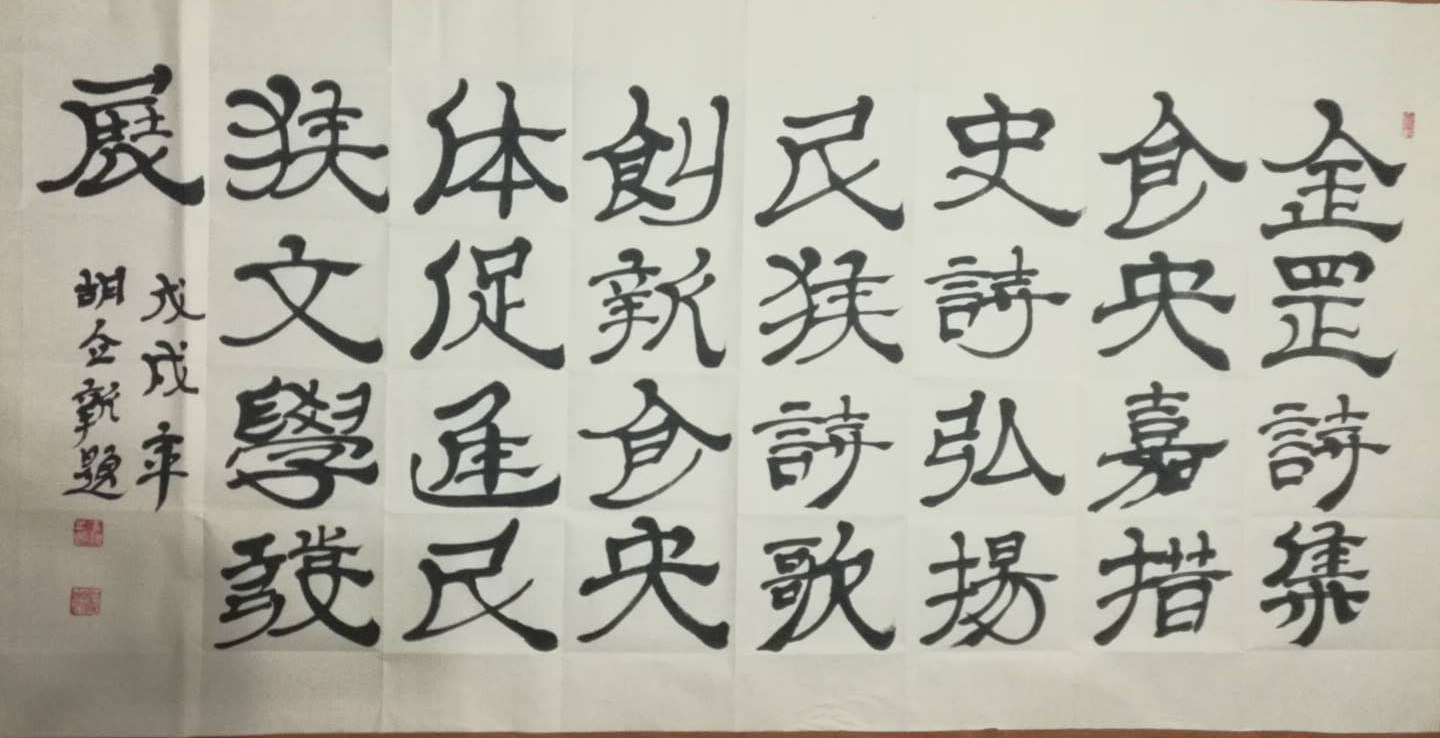 金罡詩集
倉央嘉措
史詩弘揚
民族詩歌
創新倉央
体促進民
族文學發
展
戊戌年
胡企題